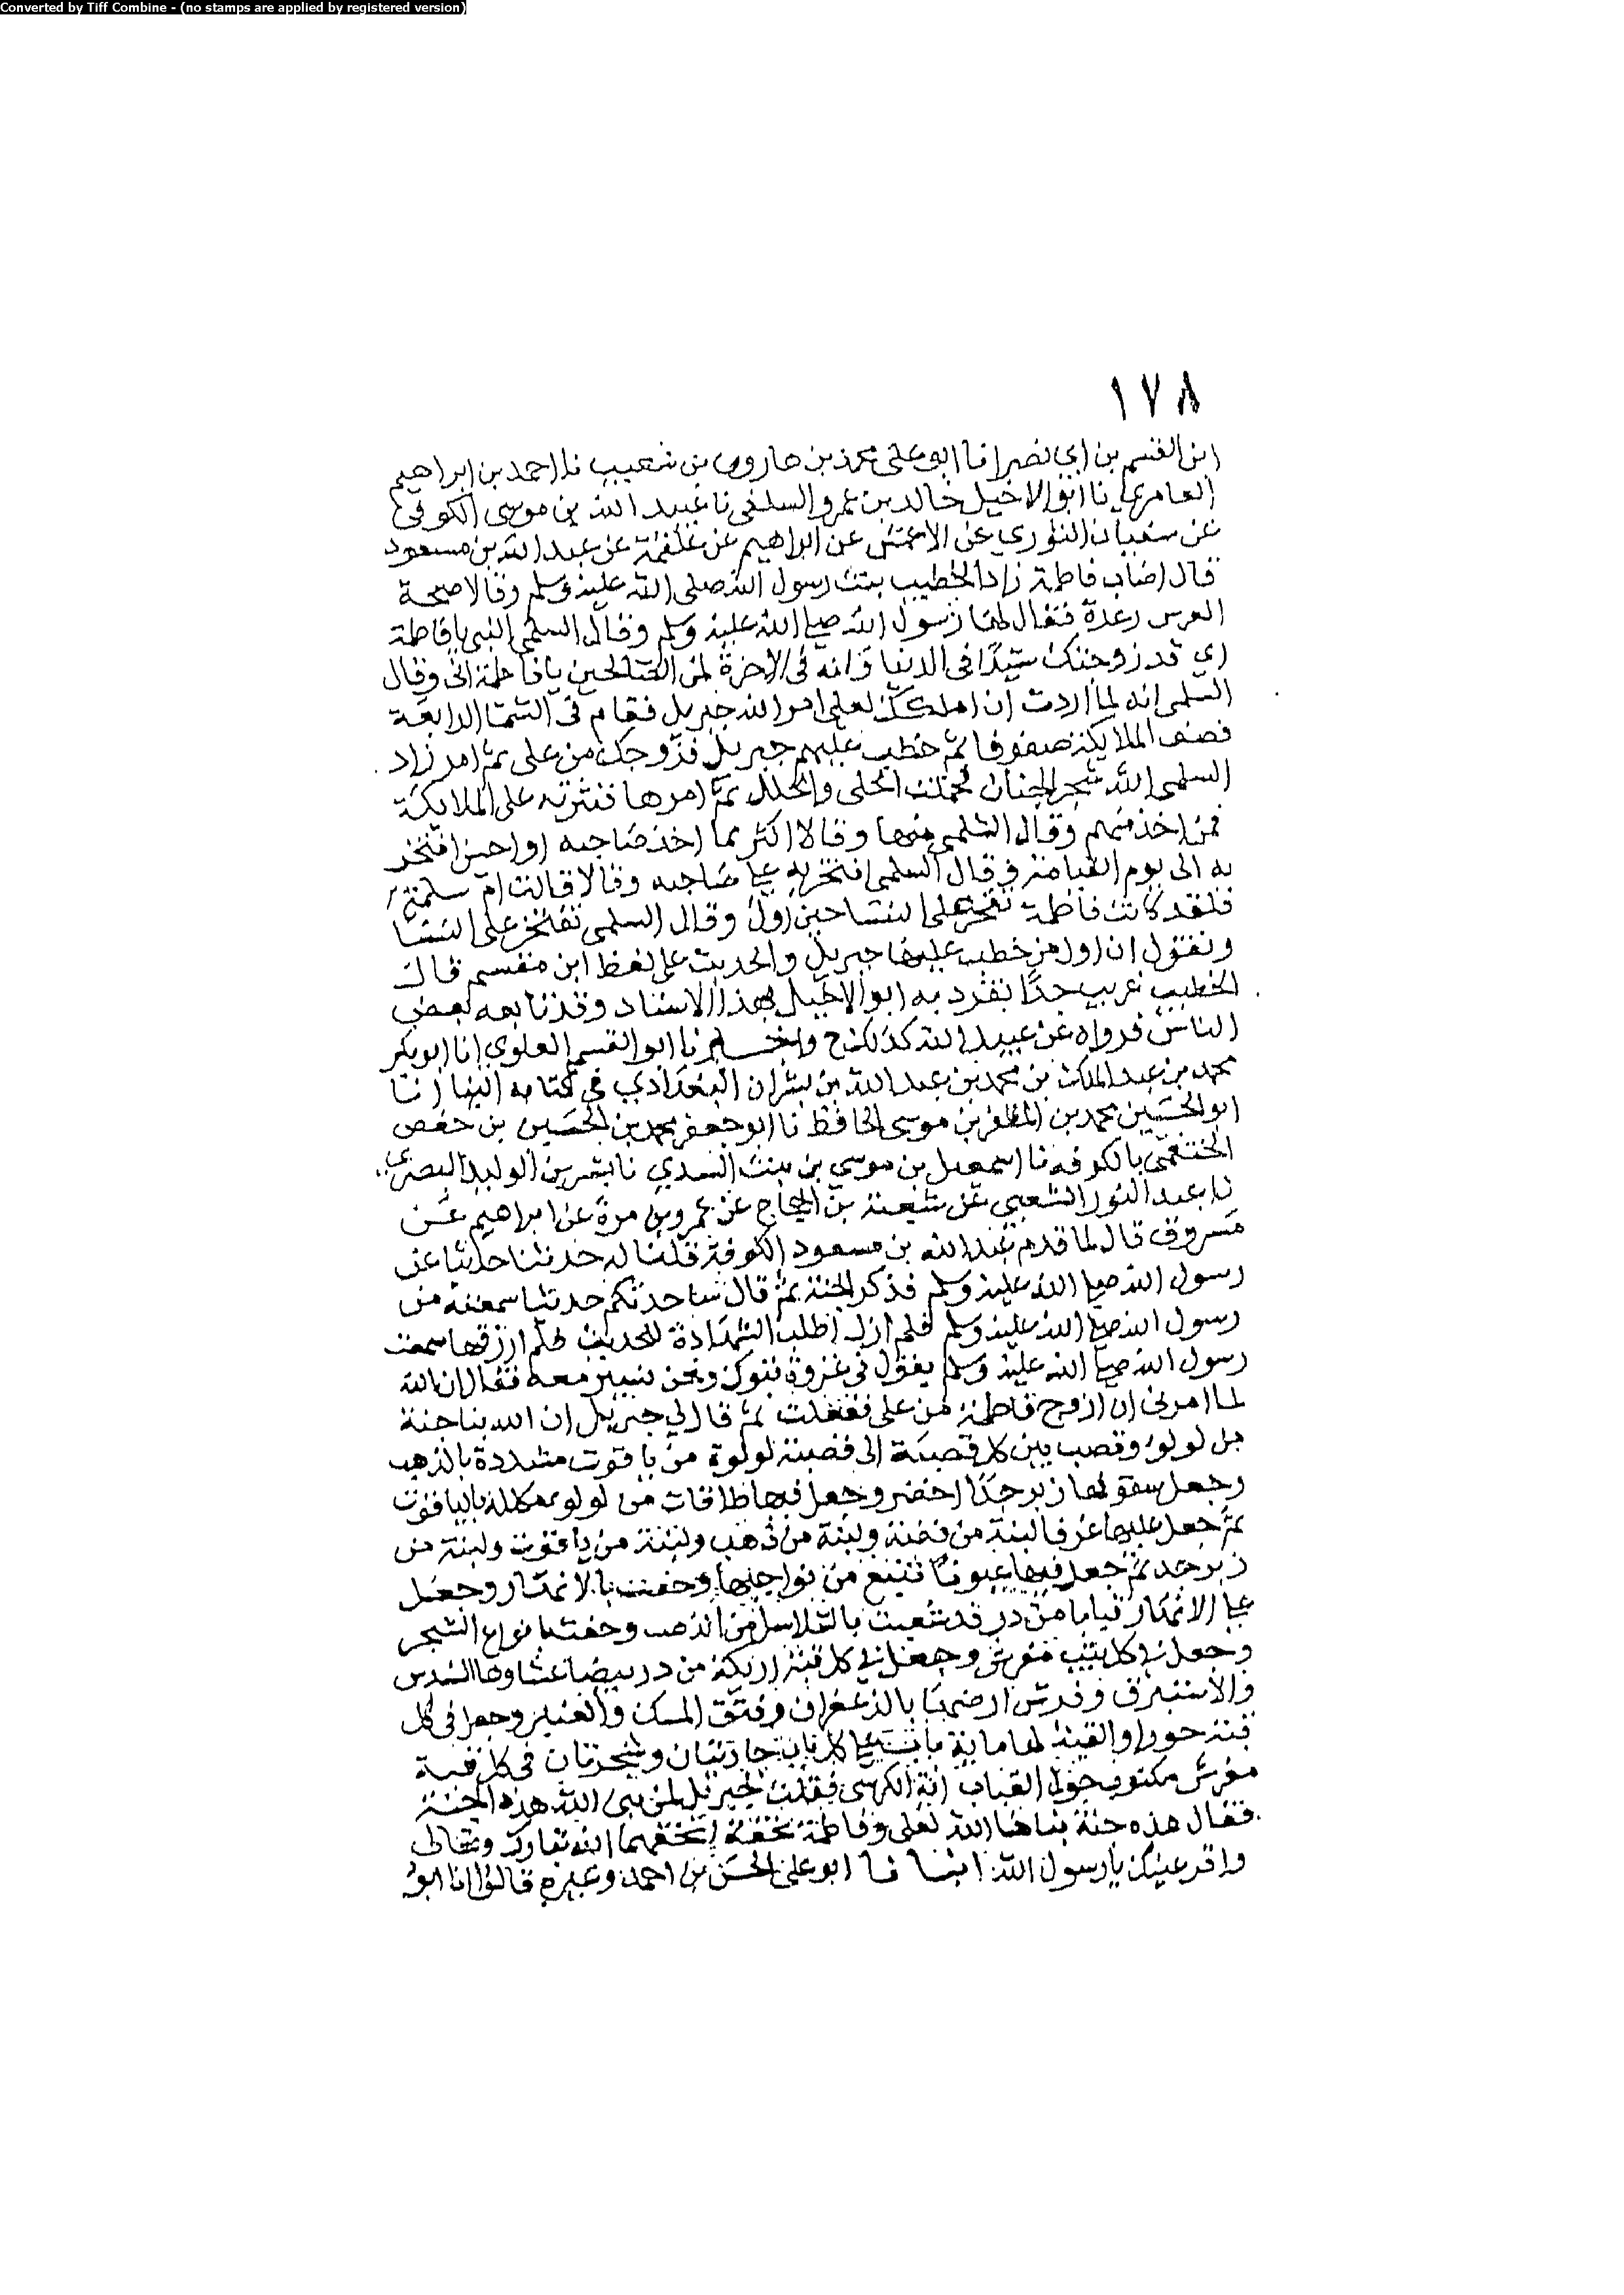 Converted by Tiff Combine - (no stamps are applied by registered version)
١٧٨
ابن القسم بن ابي نصر انا ابو على محمد بن هارون بن شعيب نا احمد بن ابراهيم
العامري نا ابو الاخيل خالد بن عمرو السلفى نا عبيد الله بن موسى الكوفى
عن سفيان الثوري عن الاعمش عن ابراهيم عن علقمة عن عبد الله بن مسعود
قال اصاب فاطمة زاد الخطيب بنت رسول الله صلى الله عليه وسلم وقالا صبيحة
العرس رعدة فقال لها رسول الله صلى الله عليه وسلم وقال السلمى النبى يا فاطمة
اي قد زوجتك سيدا فى الدنيا وانه فى الاخرة لمن الصالحين يا فاطمة انى وقال
السلمى انه لما اردت ان املكك لعلى امر الله جبريل فقام فى السما الرابعة
فصف الملايكة صفوفا ثم خطب عليهم جبريل فزوجك من على ثم امر زاد
السلمى الله شجر الجنان فحملت الحلى والحلل ثم امرها فنثرته على الملايكة
فمن اخذ منهم وقال السلمى منها وقالا اكثر مما اخذ صاحبه او احسن افتخر
به الى يوم القيامة وقال السلمى افتخر به على صاحبه وقالا قالت ام سلمة
فلقد كانت فاطمة تفخر على النسا حين اول وقال السلمى تفتخر على النسا
وتقول ان اول من خطب عليها جبريل والحديث على لفظ ابن مقسم قال
الخطيب غريب جدا تفرد به ابو الاخيل بهذا الاسناد وقد تابعه بعض
الناس فرواه عن عبيد الله كذلك ح واخبرنا ابو القسم العلوي انا ابو بكر
محمد بن عبد الملك بن محمد بن عبد الله بن بشران البغدادي في كتابه الينا انا
ابو الحسين محمد بن المظفر بن موسى الحافظ نا ابو جعفر محمد بن الحسين بن حفص
الخثعمى بالكوفه نا اسمعيل بن موسى بن بنت السدي نا بشر بن الوليد البصرى
نا عبد النور الشعبى عن شعبة بن الحجاج عن عمرو بن مرة عن ابراهيم عن
مسروق قال لما قدم عبد الله بن مسعود الكوفة قلنا له حدثنا حديثا عن
رسول الله صلى الله عليه وسلم فذكر الجنة ثم قال ساحدثكم حديثا سمعته من
رسول الله صلى الله عليه وسلم فلم ازل اطلب الشهادة للحديث فلم ارزقها سمعت
رسول الله صلى الله عليه وسلم يقول فى غزوة تبوك ونحن نسير معه فقال ان الله
لما امرنى ان ازوج فاطمة من على ففعلت ثم قال لي جبريل ان الله بنا جنة
من لولو وقصب بين كل قصبة الى قصبة لولوة من ياقوت مشددة بالذهب
وجعل سقوفها زبرجدا اخضر وجعل فيها طاقات من لولو مكللة بالياقوت
ثم جعل عليها غرفا لبنة من فضة ولبنة من ذهب ولبنة من ياقوت ولبنة من
زبرجد ثم جعل فيها عيونا تنبع من نواحيها وحفت بالانهار وجعل
على الانهار قبابا من در قد شعبت بالسلاسل من الذهب وحفت بانواع الشجر
وجعل فى كل مفرش وجعل فى كل قبة اريكة من در بيضا غشاوها السندس
والاستبرق وفرش ارضها بالزعفران وفتق المسك والعنبر وجعل فى كل
قبة حورا والقبة لها ماية باب على كل باب جاريتان وشجرتان فى كل قبة
مفرش مكتوب حول القباب اية الكرسى فقلت لجبريل لمن بنى الله هذه الجنة
فقال هذه جنة بناها الله لعلى وفاطمة تحفة اتحفهما الله تبارك وتعالى
واقر عينك يا رسول الله انبانا ابو على الحسن بن احمد وغيره قالوا انا ابو